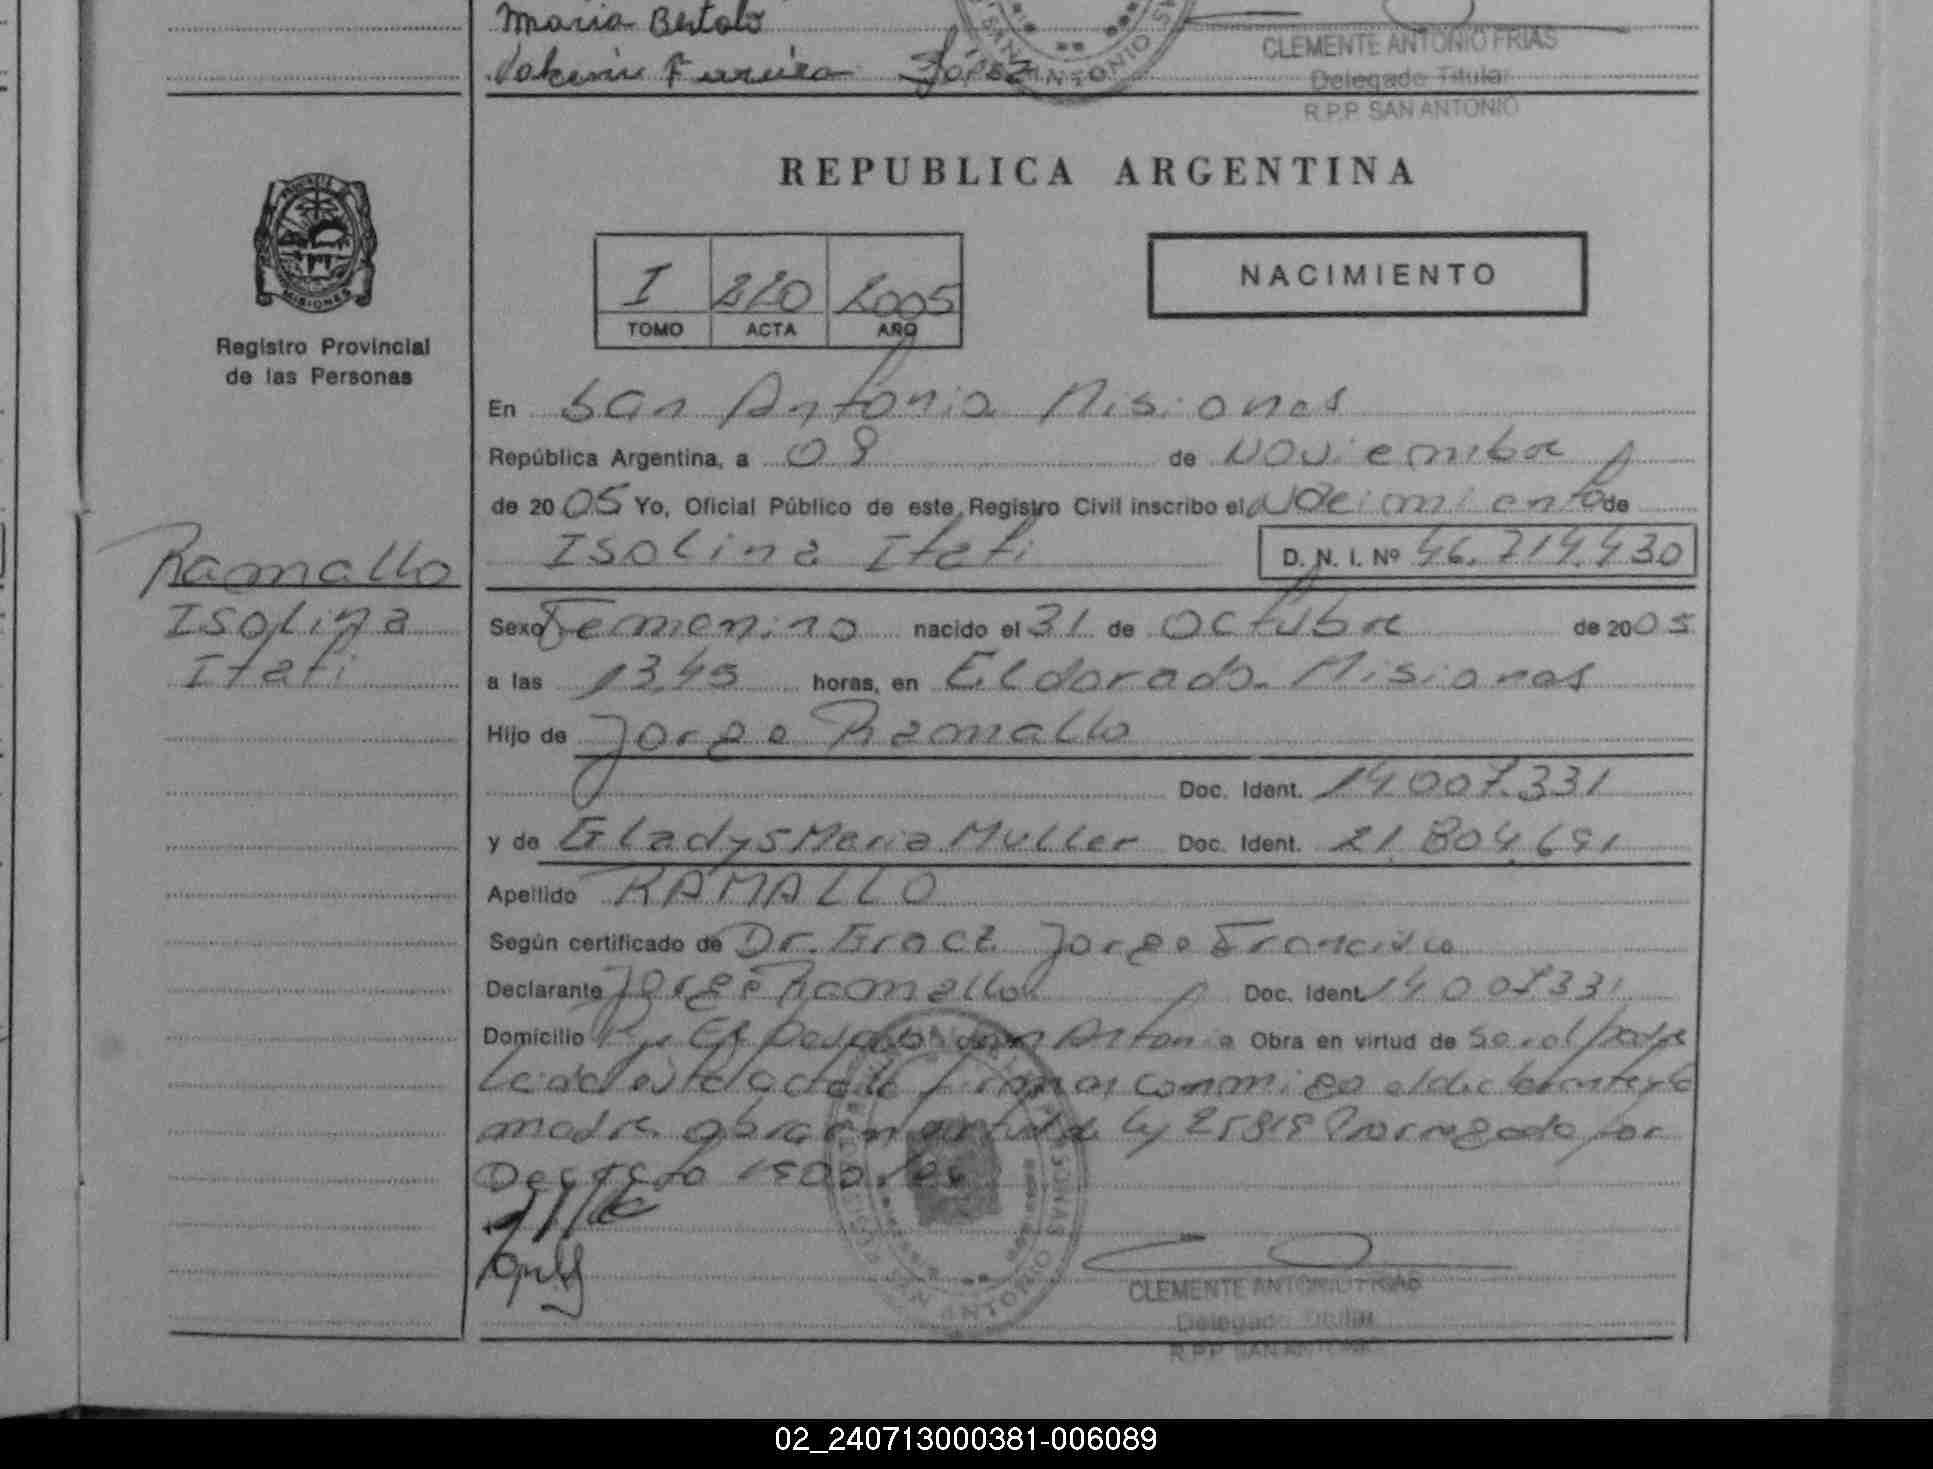 Maria Bertolo
Ferreira
CLEMENTE ANTONIO FRIAS
Delegado Titular
R.P.P. SAN ANTONIO
REPUBLICA ARGENTINA
I 220 2005
TOMO ACTA AÑO
NACIMIENTO
MISIONES
Registro Provincial
de las Personas
En San Antonio Misiones
República Argentina, a 08 de Noviembre
de 2005 Yo, Oficial Público de este Registro Civil inscribo el Nacimiento de
Isolina Itati D. N. I. Nº 46.714.430
Ramallo
Isolina
Itati
Sexo Femenino nacido el 31 de Octubre de 2005
a las 13,45 horas, en Eldorado. Misiones
Hijo de Jorge Ramallo
Doc. Ident. 14.007.331
y de Gladys Maria Muller Doc. Ident. 21.804.691
Apellido RAMALLO
Según certificado de Dr. Jorge Francisco
Declarante Jorge Ramallo Doc. Ident. 14007331
Domicilio San Antonio Obra en virtud de Ser el padre
Leida esta acta la firman conmigo el declarante y la
madre obra en virtud de Ley 25819 Prorrogado por
Decreto
CLEMENTE ANTONIO FRIAS
Delegado Titular
R.P.P. SAN ANTONIO
02_240713000381-006089